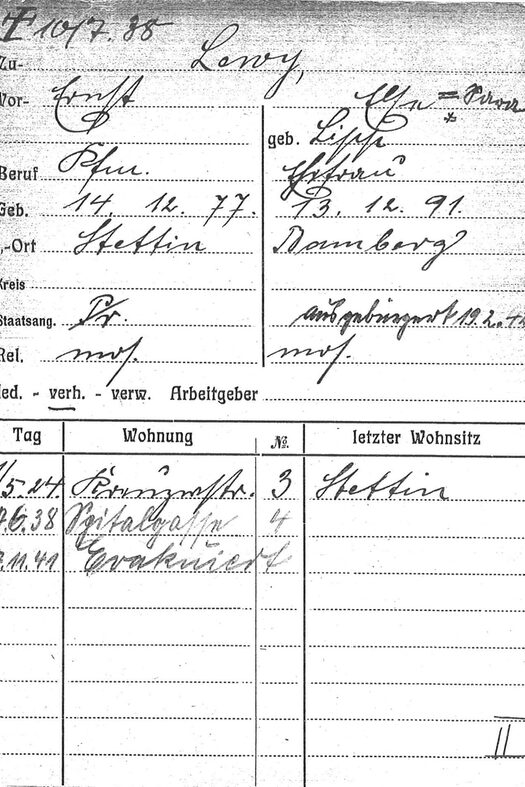 10/7. 38
Zu- Lewy,
Vor- Ernst Else = Sara
geb. Lipp
Beruf Kfm. Ehefrau
Geb. 14. 12. 77. 13. 12. 91.
-Ort Stettin Bamberg
Kreis
Staatsang. Pr. ausgebürgert 19.2.4
Rel. mos. mos.
led. - verh. - verw. Arbeitgeber
Tag Wohnung № letzter Wohnsitz
5.24. 3 Stettin
.6.38 Spitalgasse 4
.11.41 Evakuiert
II